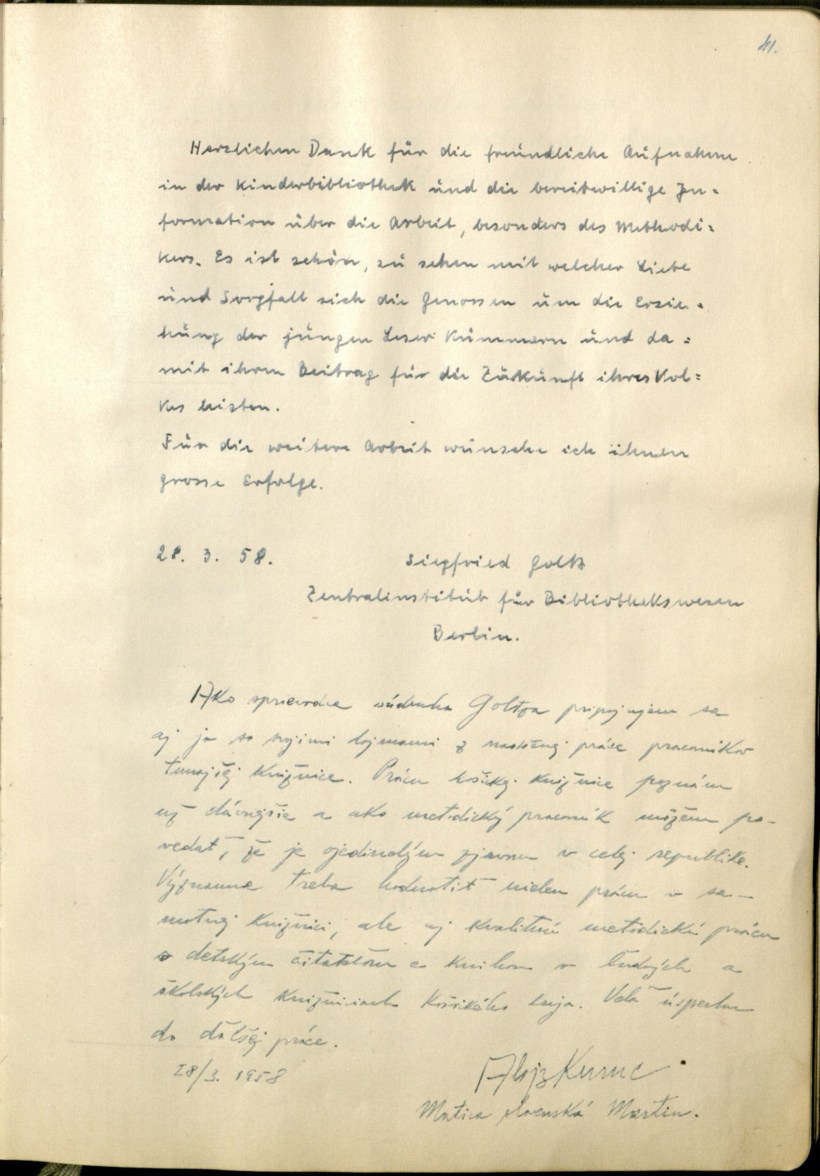 41.
Herzlichen Dank für die freundliche Aufnahme
in der Kinderbibliothek und die bereitwillige In=
formation über die Arbeit, besonders des Methodi=
kers. Es ist schön, zu sehen mit welcher Liebe
und Sorgfalt sich die Genossen um die Erzie=
hung der jungen Leser kümmern und da=
mit ihren Beitrag für die Zukunft ihres Vol=
kes leisten.
Für die weitere Arbeit wünsche ich ihnen
grosse Erfolge.
28. 3. 58.
Siegfried
Zentralinstitut für Bibliothekswesen
Berlin.
Ako sprievodca súdruha Goltza pripojujem sa
aj ja so svojimi dojmami z naozaj práce pracovníkov
tunajšej knižnice. Prácu košickej knižnice poznám
už dávnejšie a ako metodický pracovník môžem po-
vedať, že je ojedinelým zjavom v celej republike.
Významne treba hodnotiť nielen prácu v sa-
motnej knižnici, ale aj kvalitnú metodickú prácu
s detským čitateľom a knihou v ľudových a
školských knižniciach Košického kraja. Veľa úspechov
do ďalšej práce.
28/3. 1958
Alojz Kuruc
Matica slovenská Martin.